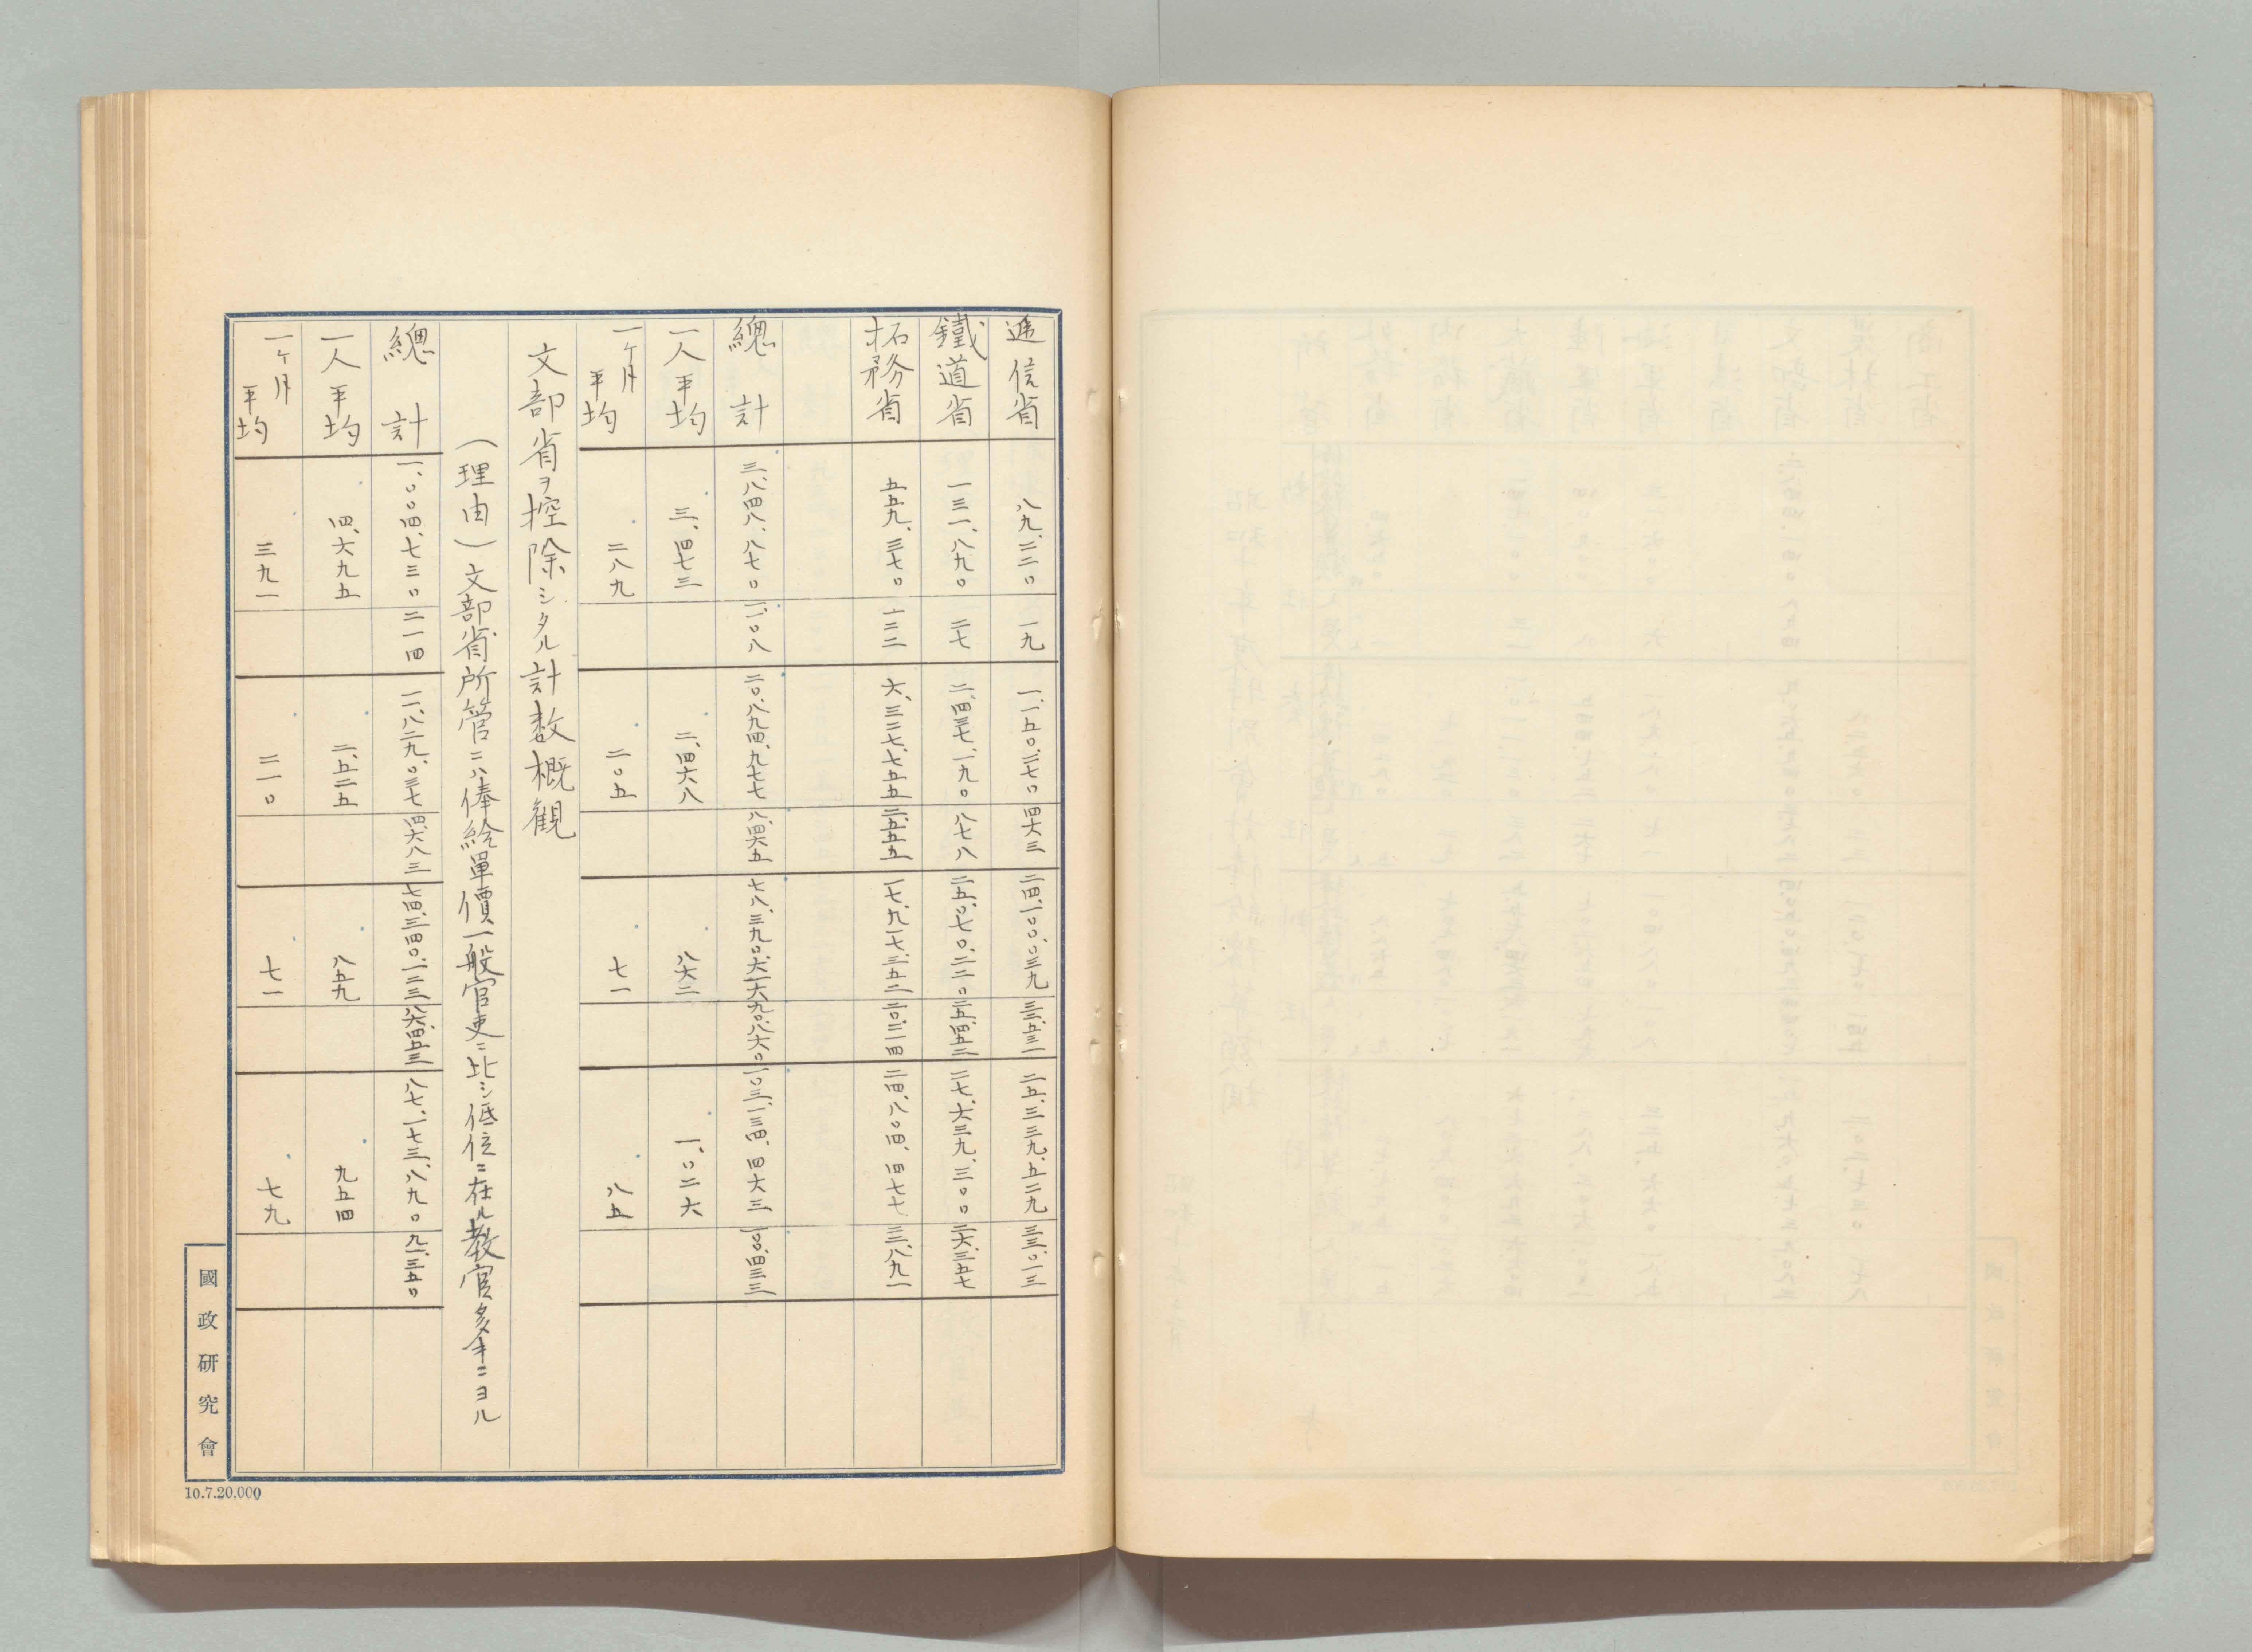 遞信省 八九、二二〇 一九 一、一五〇、二七〇 四六三 二四、一〇〇、〇三九 三二、五三一 二五、三三九、五二九 三三、〇一三
鐵道省 一三一、八九〇 二七 二、四三七、一九〇 八七八 二五、〇七〇、二二〇 二五、四五二 二七、六三九、三〇〇 二六、三五七
拓務省 五五九、三七〇 一二二 六、三二七、七五五 二、五五五 一七、九一七、三五二 二〇、二一四 二四、八〇四、四七七 二二、八九一
總計 三、八四八、八七〇 一、一〇八 二〇、八九四、九七七 八、四六五 七八、三九〇、六一六 九〇、八六〇 一〇三、一三四、四六三 一〇〇、四三三
一人平均 三、四七三 二、四六八 八六二 一、〇二六
一ヶ月平均 二八九 二〇五 七一 八五
文部省ヲ控除シタル計数概観
(理由)文部省所管ニハ俸給單價一般官吏ニ比シ低位ニ在ル教官多キニヨル
總計 一、〇〇四、七三〇 二一四 一一、八二九、〇三七 四、六八三 七四、三四〇、一二三 八六、四五三 八七、一七三、八九〇 九一、三五〇
一人平均 四、六九五 二、五二五 八五九 九五四
一ヶ月平均 三九一 二一〇 七一 七九
國政研究會
10.7.20.000